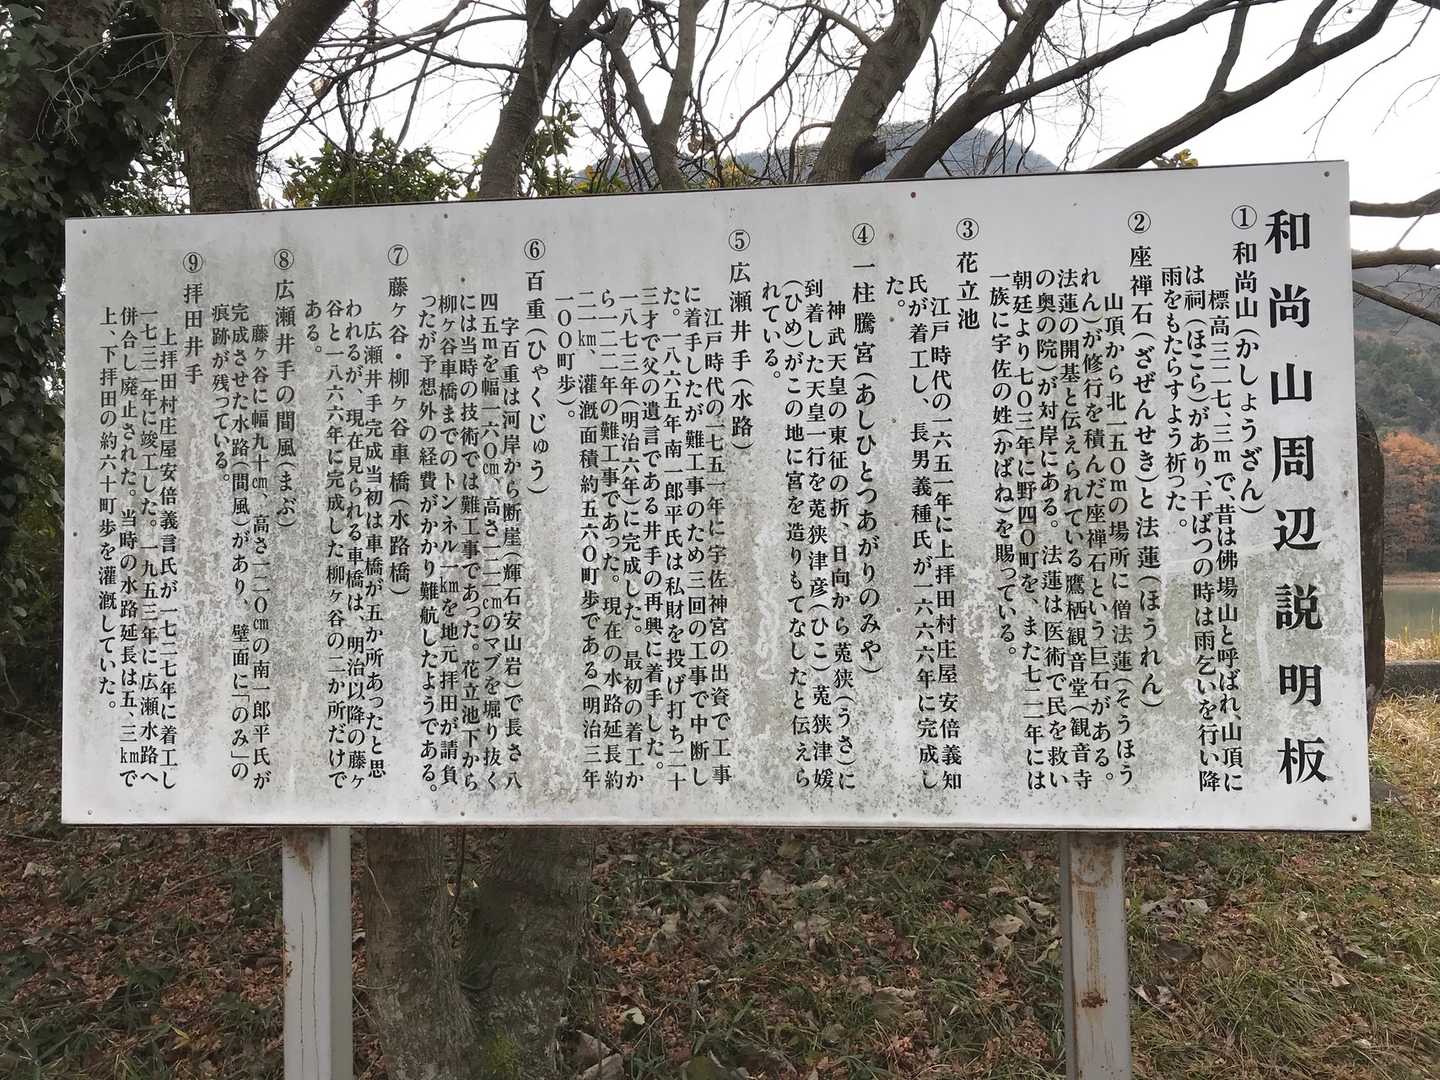 和尚山周辺説明板
①和尚山(かしょうざん)
標高三二七、三mで、昔は佛場山と呼ばれ、山頂に
は祠(ほこら)があり、干ばつの時は雨乞いを行い降
雨をもたらすよう祈った。
②座禅石(ざぜんせき)と法蓮(ほうれん)
山頂から北一五〇mの場所に僧法蓮(そうほう
れん)が修行を積んだ座禅石という巨石がある。
法蓮の開基と伝えられている鷹栖観音堂(観音寺
の奥の院)が対岸にある。法蓮は医術で民を救い
朝廷より七〇三年に野四〇町を、また七二一年には
一族に宇佐の姓(かばね)を賜っている。
③花立池
江戸時代の一六五一年に上拝田村庄屋安倍義知
氏が着工し、長男義種氏が一六六六年に完成し
た。
④一柱騰宮(あしひとつあがりのみや)
神武天皇の東征の折、日向から菟狭(うさ)に
到着した天皇一行を菟狭津彦(ひこ)菟狭津媛
(ひめ)がこの地に宮を造りもてなしたと伝えら
れている。
⑤広瀬井手(水路)
江戸時代の一七五一年に宇佐神宮の出資で工事
に着手したが難工事のため三回の工事で中断し
た。一八六五年南一郎平氏は私財を投げ打ち二十
三才で父の遺言である井手の再興に着手した。
一八七三年(明治六年)に完成した。最初の着工か
ら一二二年の難工事であった。現在の水路延長約
二二㎞、灌漑面積約五六〇町歩である(明治三年
一〇〇町歩)。
⑥百重(ひゃくじゅう)
字百重は河岸から断崖(輝石安山岩)で長さ八
四五mを幅一六〇㎝、高さ二二一㎝のマブを堀り抜く
には当時の技術では難工事であった。花立池下から
柳ヶ谷車橋までのトンネル一㎞を地元拝田が請負
ったが予想外の経費がかかり難航したようである。
⑦藤ヶ谷・柳ヶ谷車橋(水路橋)
広瀬井手完成当初は車橋が五か所あったと思
われるが、現在見られる車橋は、明治以降の藤ヶ
谷と一八六六年に完成した柳ヶ谷の二か所だけで
ある。
⑧広瀬井手の間風(まぶ)
藤ヶ谷に幅九十㎝、高さ一二〇㎝の南一郎平氏が
完成させた水路(間風)があり、壁面に「のみ」の
痕跡が残っている。
⑨拝田井手
上拝田村庄屋安倍義言氏が一七二七年に着工し
一七三一年に竣工した。一九五三年に広瀬水路へ
併合し廃止された。当時の水路延長は五、三㎞で
上、下拝田の約六十町歩を灌漑していた。